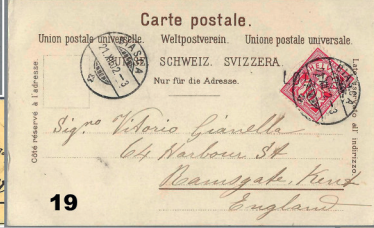 Carte postale.
Union postale universelle. Weltpostverein. Unione postale universale.
SCHWEIZ. SVIZZERA.
Nur für die Adresse.
Côté réservé à l'adresse.
Lato riservato all' indirizzo.
Sigro Vitorio Gianella
64 Harbour St
Ramsgate, Kent
England
19